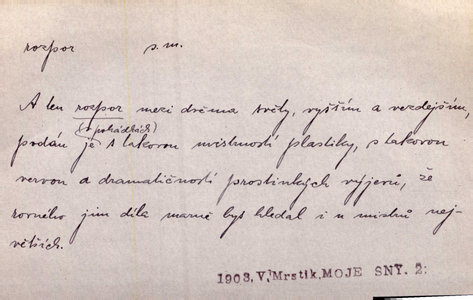 rozpor s. m.
A ten rozpor mezi dvěma světy, vyšším a vezdejším,
(v pohádkách)
podán je s takovou mistrností plastiky, s takovou
vervou a dramatičností prostinkých výjevů, že
rovného jim díla marně bys hledal i u mistrů nej-
větších.
1903, V. Mrstík, MOJE SNY. 2: